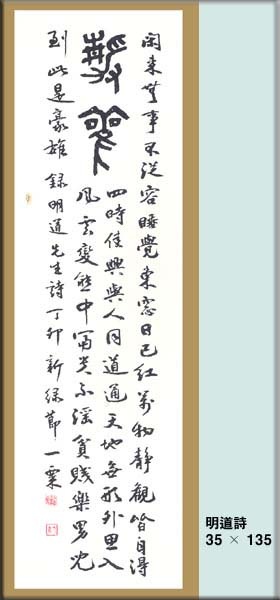 閑来無事不従容睡覺東窓日已紅萬物静観皆自得
四時佳興與人同道通天地無形外思入
風雲變態中富貴不淫貧賤樂男児
到此是豪雄 録明道先生詩丁卯新緑節 一粟
明道詩
35 × 135